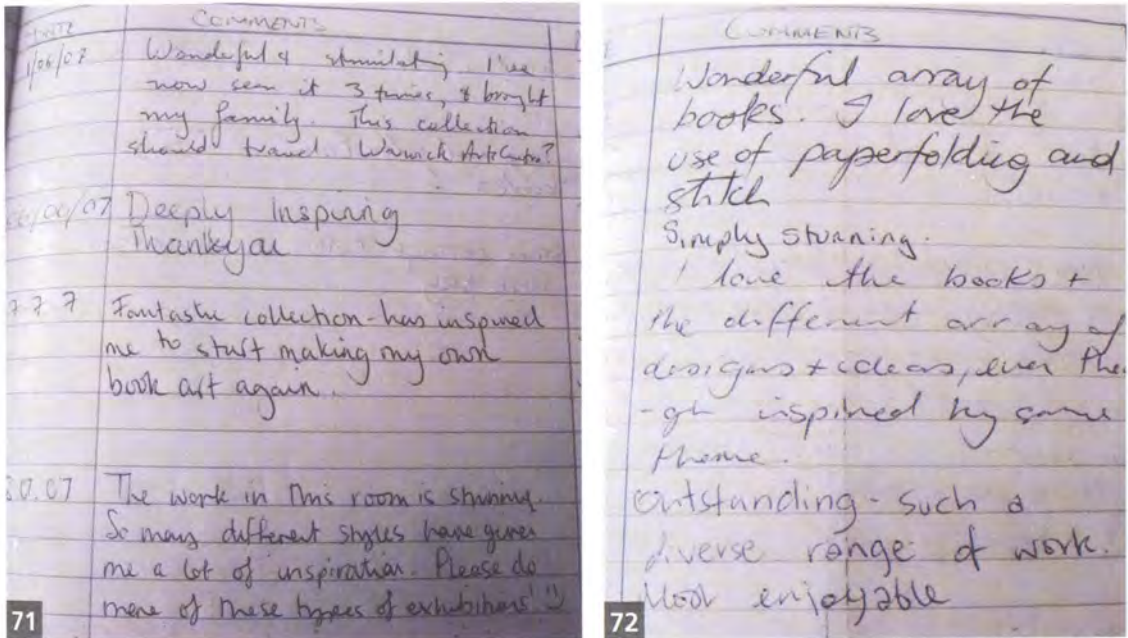 COMMENTS
1/06/07 Wonderful & stimulating I've
now seen it 3 times, & brought
my family. This collection
should travel. Warwick Arts Centre?
/07 Deeply Inspiring
Thankyou
7 7 7 Fantastic collection - has inspired
me to start making my own
book art again.
.07 The work in this room is stunning.
So many different styles have given
me a lot of inspiration. Please do
more of these types of exhibitions! :)
71
COMMENTS
Wonderful array of
books. I love the
use of paperfolding and
stitch
Simply stunning.
I love the books +
the different array of
designs + ideas, even tho
-gh inspired by same
theme.
Outstanding - such a
diverse range of work.
Most enjoyable
72